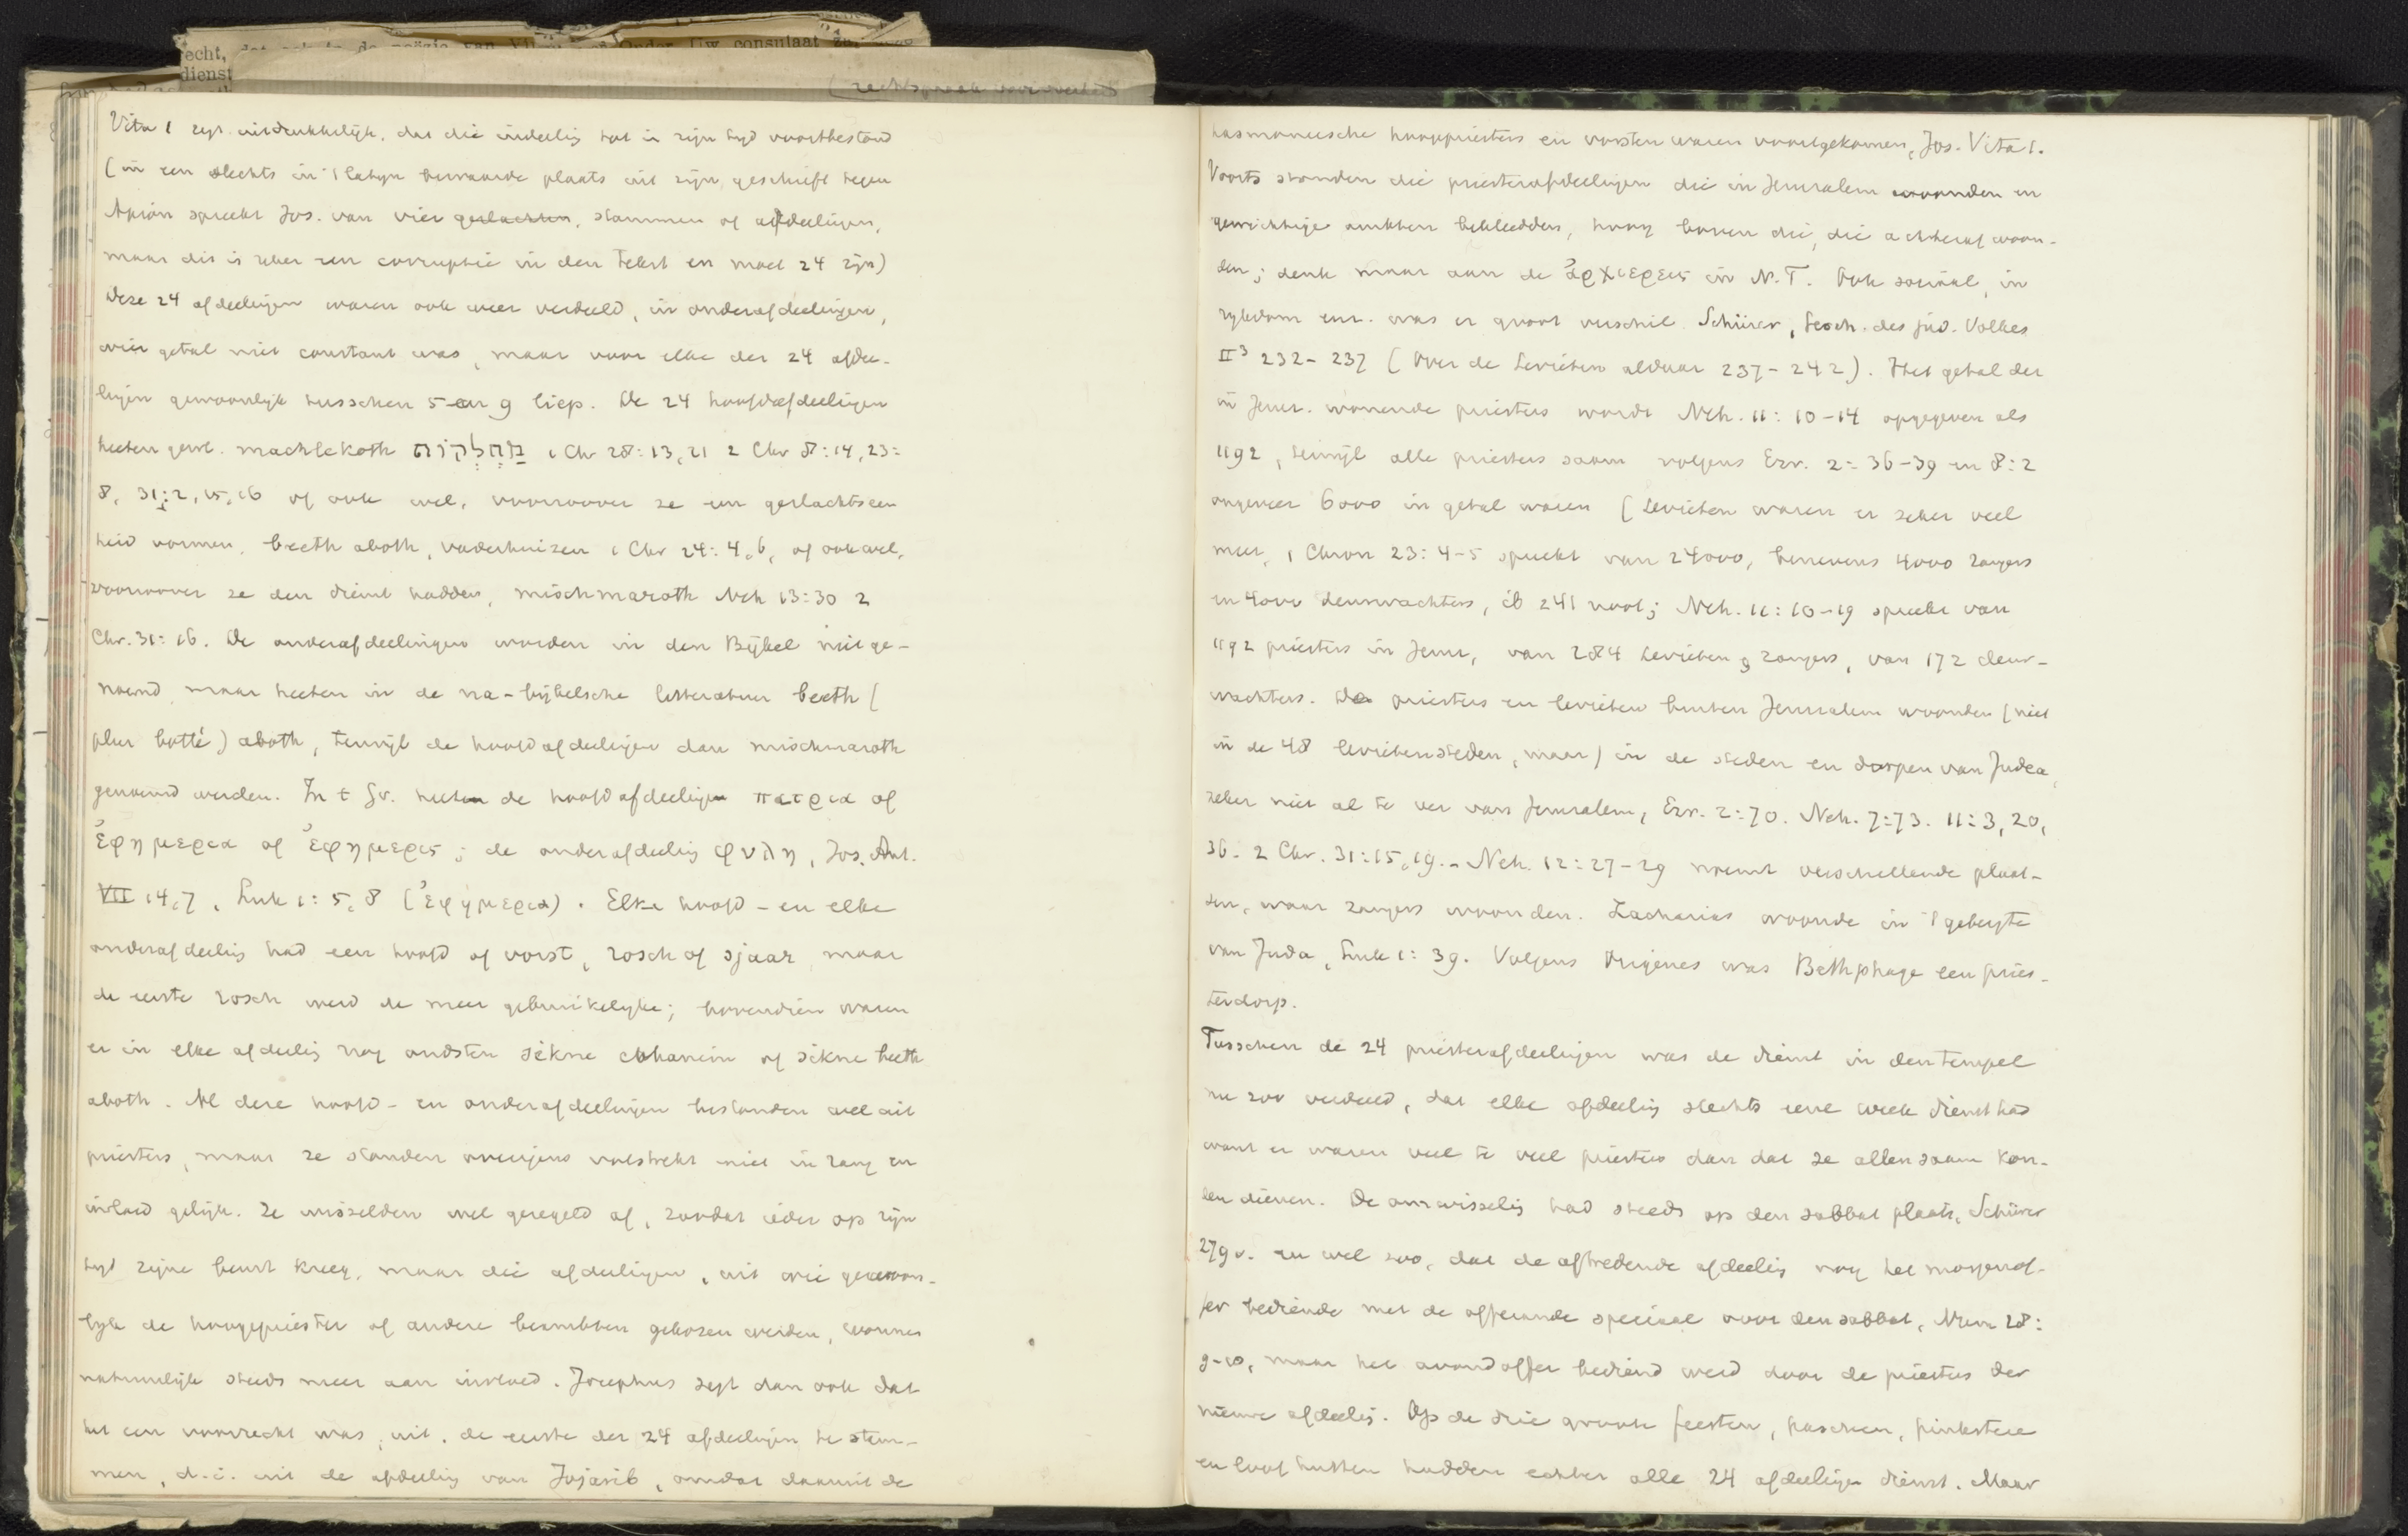 echt, dat ook in de poëzie van Onder Uw consulaat
dienst
Vita 1 zegt uitdrukkelijk, dat die indeeling tot in zijn tijd voortbestond
(in een slechts in 't latijn bewaarde plaats uit zijn geschrift tegen
Apion spreekt Jos. van vier geslachten, stammen of afdeelingen,
maar dit is zeker een corruptie in den tekst en moet 24 zijn)
Deze 24 afdeelingen waren ook weer verdeeld, in onderafdeelingen,
wier getal niet constant was, maar voor elke der 24 afdee-
lingen gewoonlijk tusschen 5 en 9 liep. De 24 hoofdafdeelingen
heeten gewl. machlekoth מַחְלְקוֹת 1 Chr 28:13,21 2 Chr 8:14, 23:
8, 31:2,15,16 of ook wel, voorzoover ze een geslachtseen
heid vormen, beeth aboth, vaderhuizen 1 Chr 24:4,6, of ook wel,
voorzoover ze den dienst hadden, mischmaroth Neh 13:30 2
Chr. 31:16. De onderafdeelingen worden in den Bijbel niet ge-
noemd, maar heeten in de na-bijbelsche litteratuur beeth (
plur botté) aboth, terwijl de hoofdafdeelingen dan mischmaroth
genoemd werden. In t Gr. heeten de hoofdafdeelingen πατρια of
ἐφημερια of ἐφημερις; de onderafdeeling φυλη, Jos. Ant.
VII 14,7, Luk 1:5,8 (ἐφημερια). Elke hoofd- en elke
onderafdeeling had een hoofd of vorst, rosch of sjaar, maar
de eerste rosch werd de meer gebruikelijke; bovendien waren
er in elke afdeeling nog oudsten sikne cohanim of sikne beeth
aboth. Al deze hoofd- en onderafdeelingen bestonden wel uit
priesters, maar ze stonden overigens volstrekt niet in rang en
invloed gelijk. Ze wisselden wel geregeld af, zoodat ieder op zijn
tijd zijne beurt kreeg, maar die afdeelingen, uit wie gewoon-
lijk de hoogepriester of andere beambten gekozen werden, wonnen
natuurlijk steeds meer aan invloed. Josephus zegt dan ook dat
het een voorrecht was, uit de eerste der 24 afdeelingen te stam-
men, d.i. uit de afdeeling van Jojarib, omdat daaruit de
hasmoneesche hoogpriesters en vorsten waren voortgekomen, Jos. Vita 1.
Voorts stonden die priesterafdeelingen die in Jerusalem woonden en
gewichtige ambten bekleedden, hoog boven die, die achteraf woon-
den; denk maar aan de ἀρχιερεις in N.T. Ook sociaal, in
rijkdom enz. was er groot verschil. Schürer, Gesch. des jüd. Volkes
II³ 232-237 (Over de Levieten aldaar 237-242). Het getal der
in Jeruz. wonende priesters wordt Neh. 11:10-14 opgegeven als
1192, terwijl alle priesters saam volgens Ezr. 2:36-39 en 8:2
ongeveer 6000 in getal waren (Levieten waren er zeker veel
meer, 1 Chron 23:4-5 spreekt van 24000, benevens 4000 zangers
en 4000 deurwachters, ib 241 noot; Neh. 11:10-19 spreekt van
1192 priesters in Jeruz, van 284 Levieten & zangers, van 172 deur-
wachters. De priesters en levieten buiten Jerusalem woonden (niet
in de 48 levietensteden, maar) in de steden en dorpen van Judea,
zeker niet al te ver van Jerusalem, Ezr. 2:70. Neh. 7:73. 11:3, 20,
36. 2 Chr. 31:15,19. - Neh. 12:27-29 noemt verschillende plaat-
sen, waar zangers woonden. Zacharias woonde in 't gebergte
van Juda, Luk 1:39. Volgens Origenes was Bethphage een pries-
terdorp.
Tusschen de 24 priesterafdeelingen was de dienst in den tempel
nu zoo verdeeld, dat elke afdeeling slechts eene week dienst had
want er waren veel te veel priesters dan dat ze allen saam kon-
den dienen. De omwisseling had steeds op den sabbat plaats, Schürer
279v. en wel zoo, dat de aftredende afdeeling nog het morgenof-
fer bediende met de offerande speciaal voor den sabbat, Num 28:
9-10, maar het avondoffer bediend werd door de priesters der
nieuwe afdeeling. Op de drie groote feesten, paschen, pinksteren
en loofhutten hadden echter alle 24 afdeelingen dienst. Maar